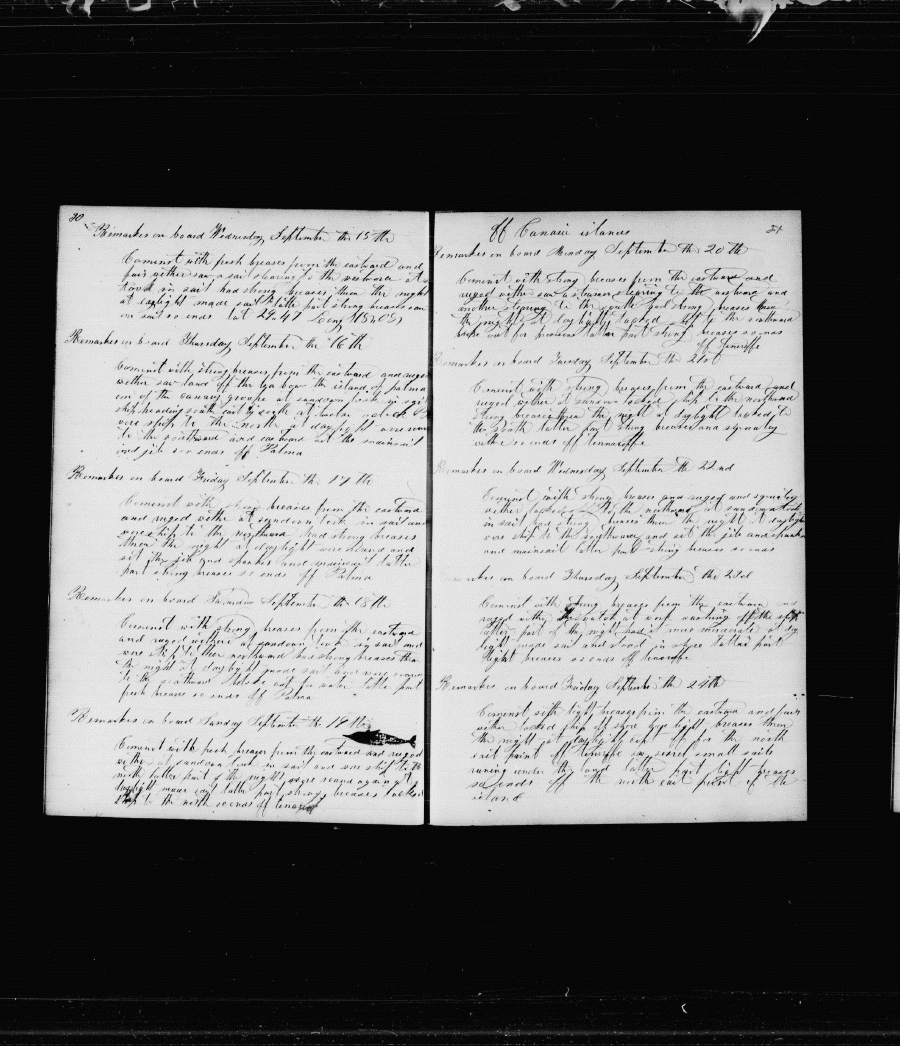 30
Remarkes on board Wednesday September the 15th
Comenst with fresh breases from the eastward and
fair wether saw a sail stearing to the westward at
took in sail had strong breases thru the night
at daylight made sail latter part strong breases
so ends Lat 29.47 Long
Remarkes on board Thursday September the 16th
Comenst with strong breases from the eastward and ruged
wether saw land off the lea bow the island of palma
one of the canary groupe at sundown took in sail
ship heading south east by south at twelve
wore ship to the north at daylight wore
to the southward and eastward set the mainsail
and jib so ends off Palma
Remarkes on board Friday September the 17th
Comenst with strong breases from the eastward
and ruged wether at sundown took in sail and
wore ship to the northward had strong breases
thru the night at daylight wore round and
set the jib and spanker and mainsail latter
part strong breases so ends off Palma
Remarkes on board Saturday September the 18th
Comenst with strong breases from the eastward
and ruged wether at sundown took in sail and
wore ship to the northward had strong breases thru
the night at daylight made sail and wore round
to the southward latter part
fresh breases so ends off Palma
Remarkes on board Sunday September the 19th
Comenst with fresh breases from the eastward and ruged
wether at sundown took in sail and wore ship to the
north latter part of the night wore round again at
daylight made sail latter part strong breases tacked
ship to the north so ends off
Off Canarie islands
31
Remarkes on board Monday September the 20th
Comenst with strong breases from the eastward and
ruged wether saw a steamer stearing to the westward and
another to the south had strong breases thru
the night at daylight tacked ship to the southward
latter part strong breases so ends
off Teneriffe
Remarkes on board Tuesday September the 21st
Comenst with strong breases from the eastward and
ruged wether at sundown tacked ship to the northward
strong breases thru the night at daylight tacked to
the south latter part strong breases and squaley
wether so ends off
Remarkes on board Wednesday September the 22nd
Comenst with strong breases and ruged and squaley
wether to the northward at sundown took
in sail had strong breases thru the night at daylight
wore ship to the southward and set the jib and spanker
and mainsail latter part strong breases so ends
Remarkes on board Thursday September the 23d
Comenst with strong breases from the eastward and
ruged wether the watch at work off the
latter part of the night had it more moderate at day
light made sail and stood in shore latter part
light breases so ends off Teneriffe
Remarkes on board Friday September the 24th
Comenst with light breases from the eastward and fair
wether tacked ship off shore had light breases thru
the night at daylight off the north
east point off Teneriffe saw several small sails
runing under the land latter part light breases
so ends off the north east point of the
island